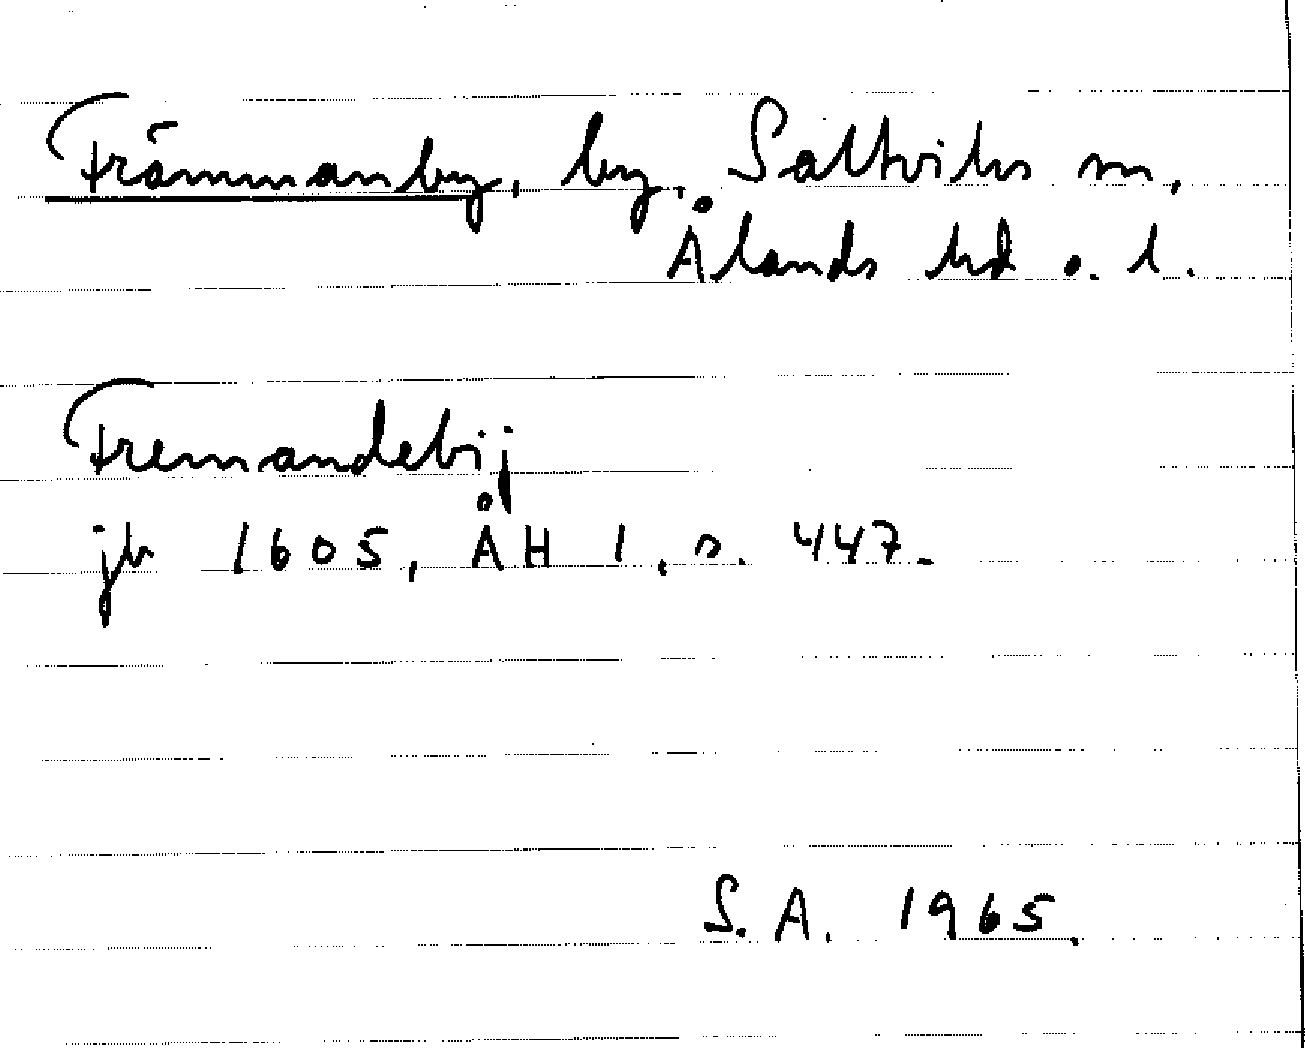 Främmanby, by, Saltviks sn,
Ålands hd o. l.
Fremandebij
jb 1605, ÅH 1, s. 447.
S. A. 1965.